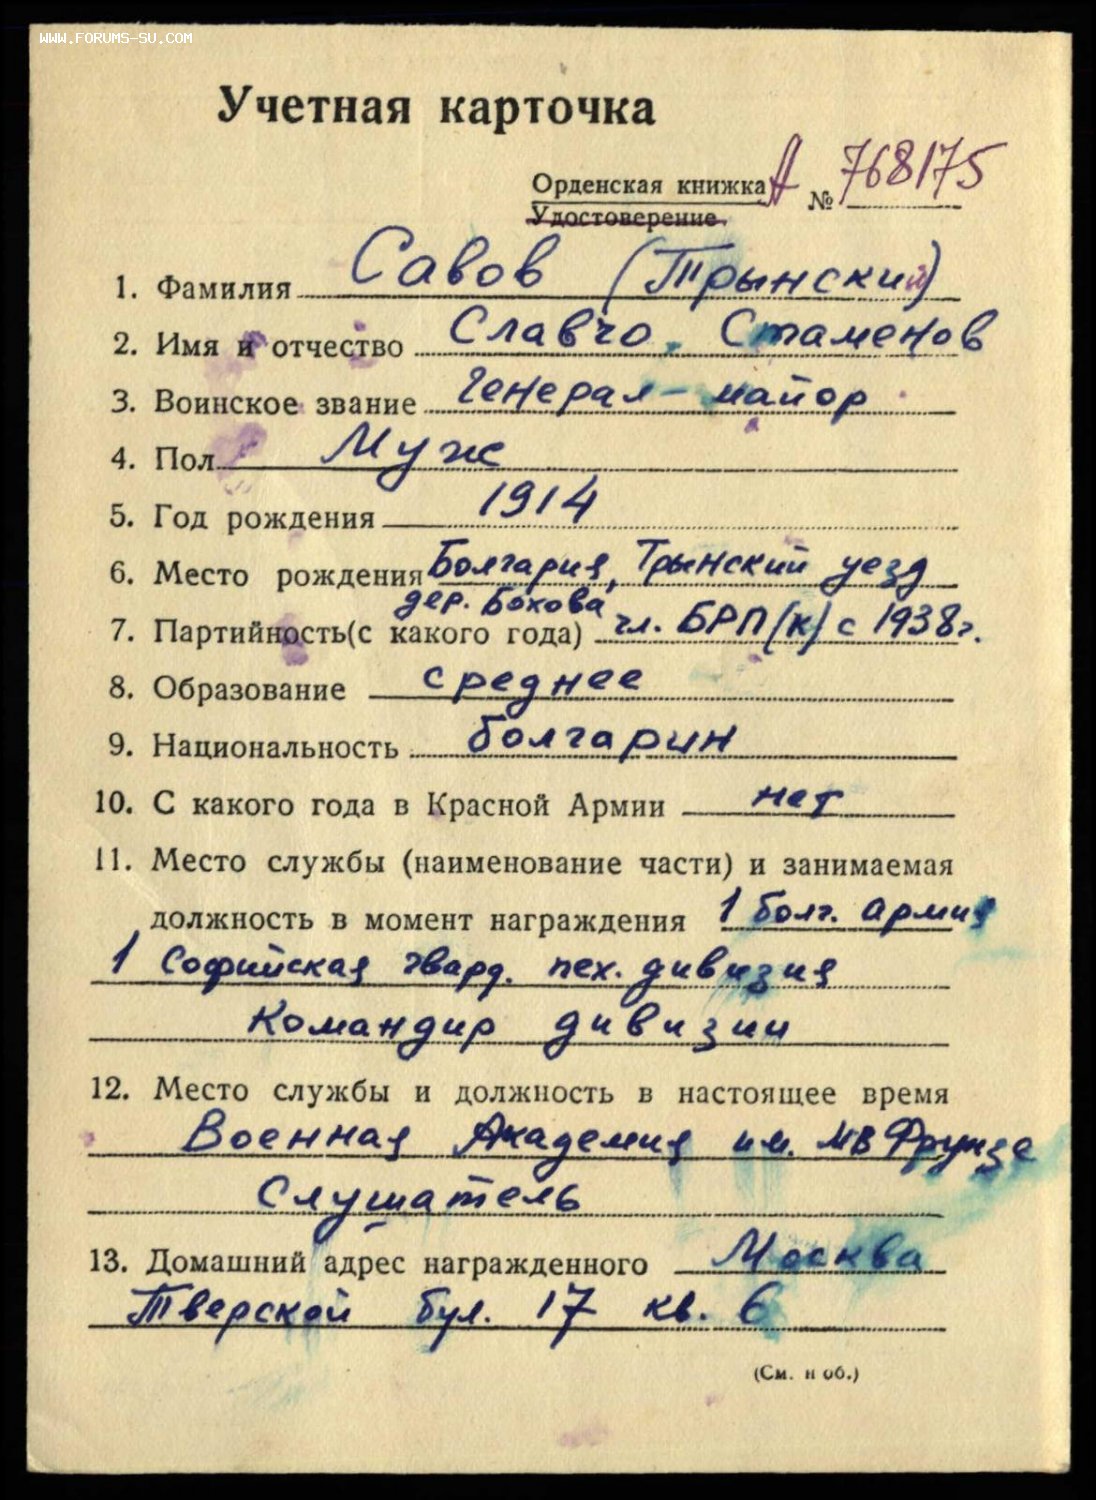 WWW.FORUMS-SU.COM
Учетная карточка
Орденская книжка А № 768175
Удостоверение
1. Фамилия Савов (Трынский)
2. Имя и отчество Славчо, Стаменов
3. Воинское звание Генерал-майор
4. Пол Муж
5. Год рождения 1914
6. Место рождения Болгария, Трынский уезд
дер. Бохова
7. Партийность (с какого года) чл. БРП(к) с 1938 г.
8. Образование среднее
9. Национальность болгарин
10. С какого года в Красной Армии нет
11. Место службы (наименование части) и занимаемая
должность в момент награждения 1 болг. армия
1 Софийская гвард. пех. дивизия
Командир дивизии
12. Место службы и должность в настоящее время
Военная Академия им. МВ Фрунзе
Слушатель
13. Домашний адрес награжденного Москва
Тверской бул. 17 кв. 6
(См. н об.)